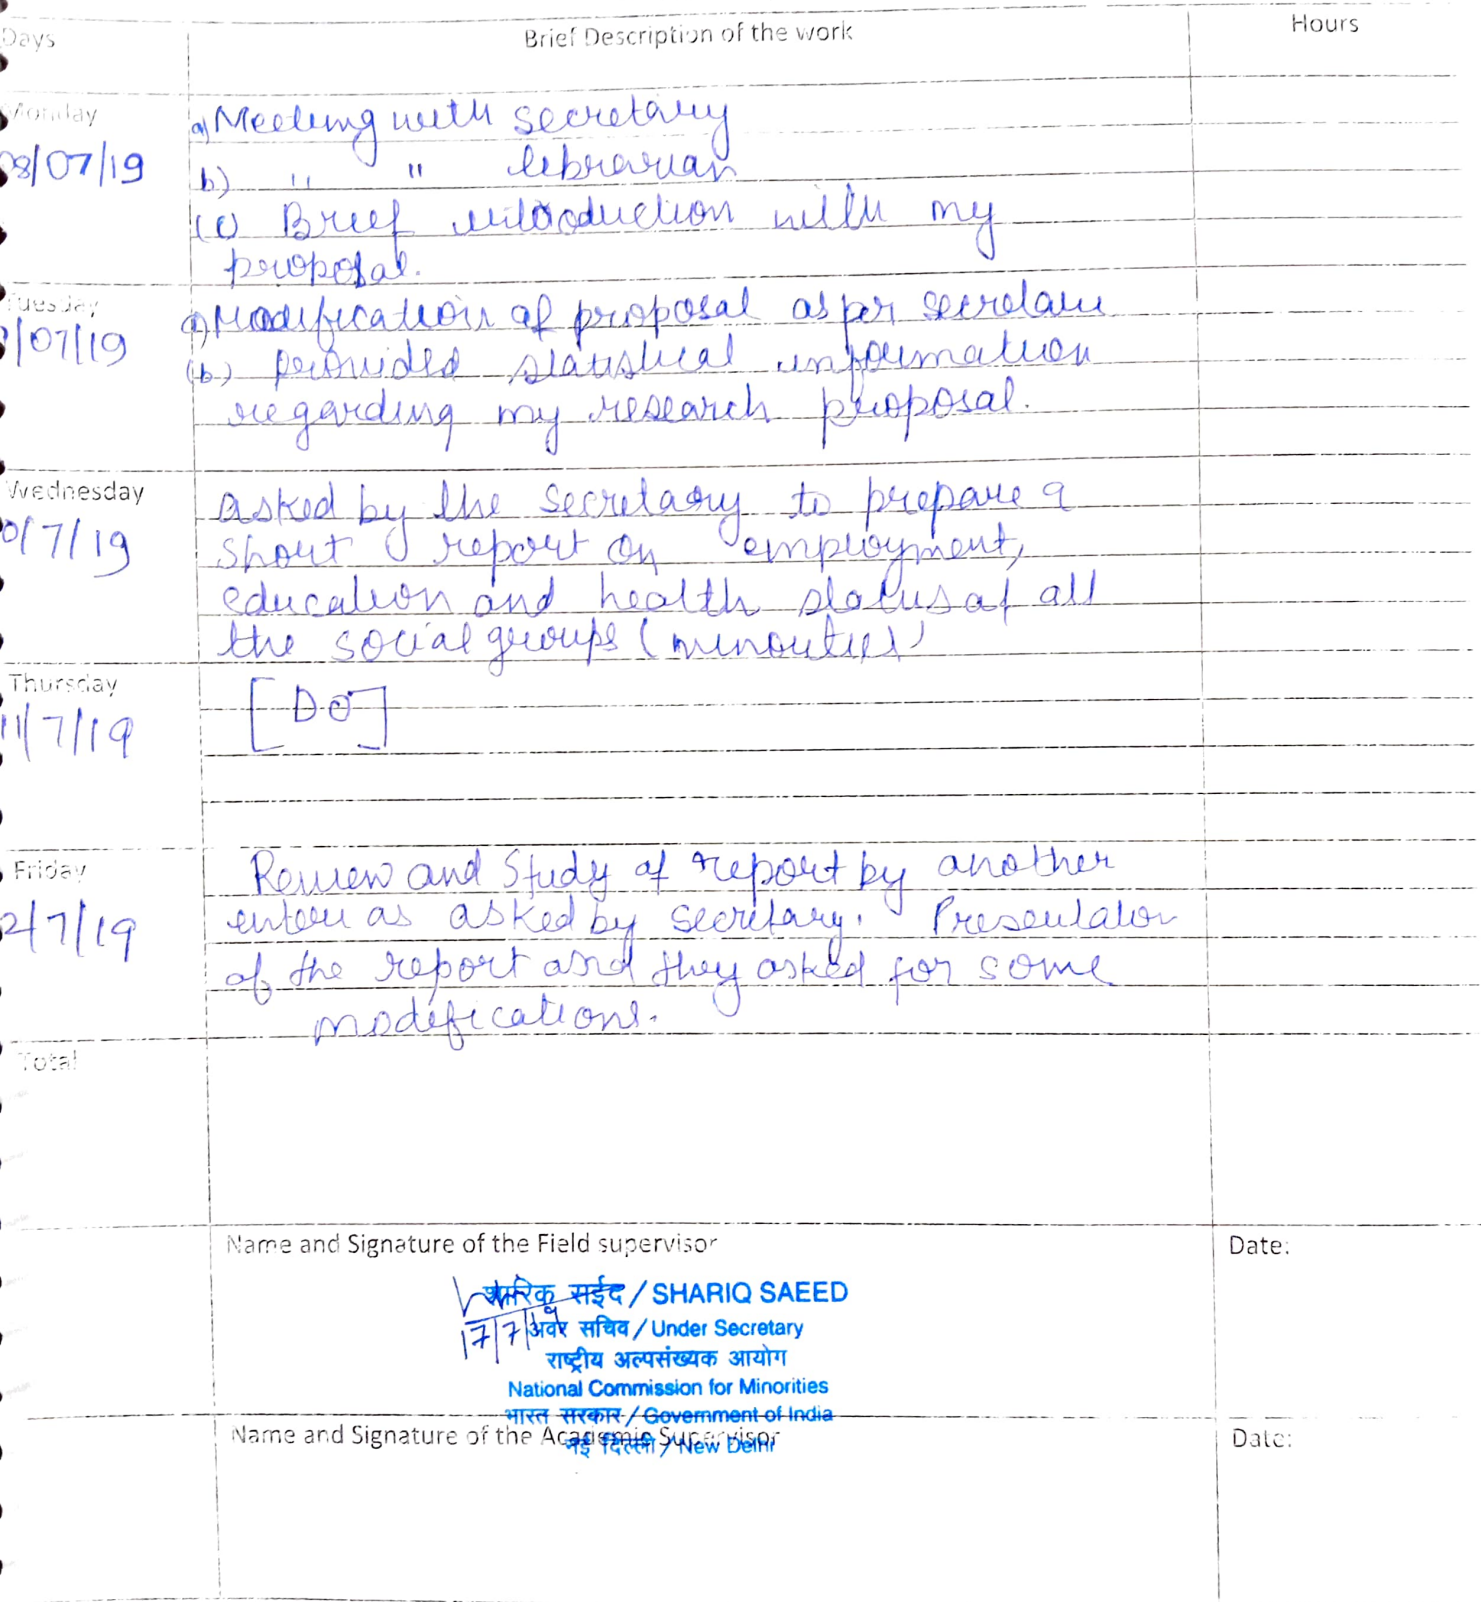 Days Brief Description of the work Hours
Monday a) Meeting with secretary
08/07/19 b) " " librarian
(c) Brief introduction with my
proposal.
Tuesday a) Modification of proposal as per secretary
/07/19 (b) Provided statistical information
regarding my research proposal.
Wednesday asked by the secretary to prepare a
0/7/19 short report on employment,
education and health status of all
the social groups (minorities)
Thursday [DO]
11/7/19
Friday Review and Study of report by another
2/7/19 intern as asked by secretary. Presentation
of the report and they asked for some
modifications.
Total
Name and Signature of the Field supervisor Date:
शारिक सईद / SHARIQ SAEED
17/7/19 अवर सचिव / Under Secretary
राष्ट्रीय अल्पसंख्यक आयोग
National Commission for Minorities
भारत सरकार / Government of India
Name and Signature of the Academic Supervisor Date:
नई दिल्ली / New Delhi